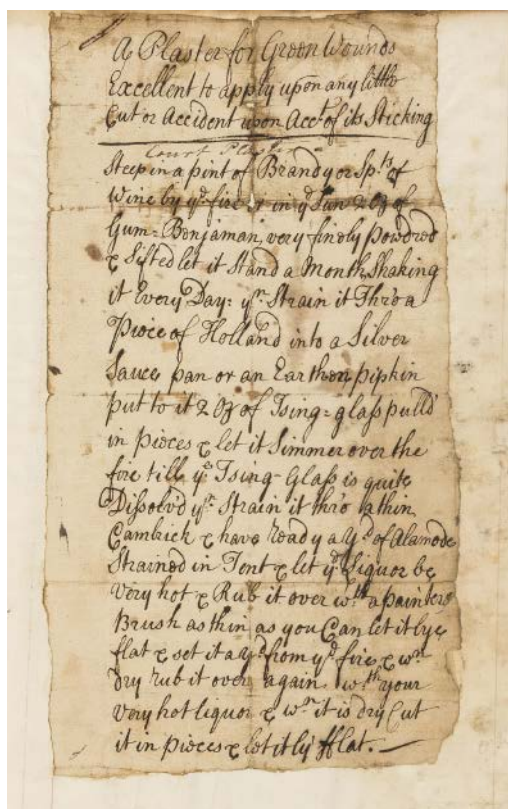 A Plaster for Green Wounds
Excellent to apply upon any little
Cut or Accident upon Acct. of its Sticking
Court Plaster
Steep in a pint of Brandy or Spts. of
Wine by ye. fire or in ye Sun 2 oz of
Gum=Benjaman, very finely Powdred
& Sifted let it Stand a Month, Shaking
it Every Day: yn. Strain it Thro' a
Piece of Holland into a Silver
Sauce pan or an Earthen pipkin
put to it 2 oz of Ising=glass pull'd
in pieces & let it Simmer over the
fire till ye. Ising-Glass is quite
Dissolv'd yn. Strain it thro' a thin
Cambrick & have ready a Yd. of Alamode
Strained in Tent & let ye. Liquor be
Very hot & Rub it over wth. a painters
Brush as thin as you Can let it lye
flat & set it a Yd. from ye. fire, & wn.
dry rub it over again wth. your
very hot liquor & wn. it is dry Cut
it in pieces & let it ly fflat.